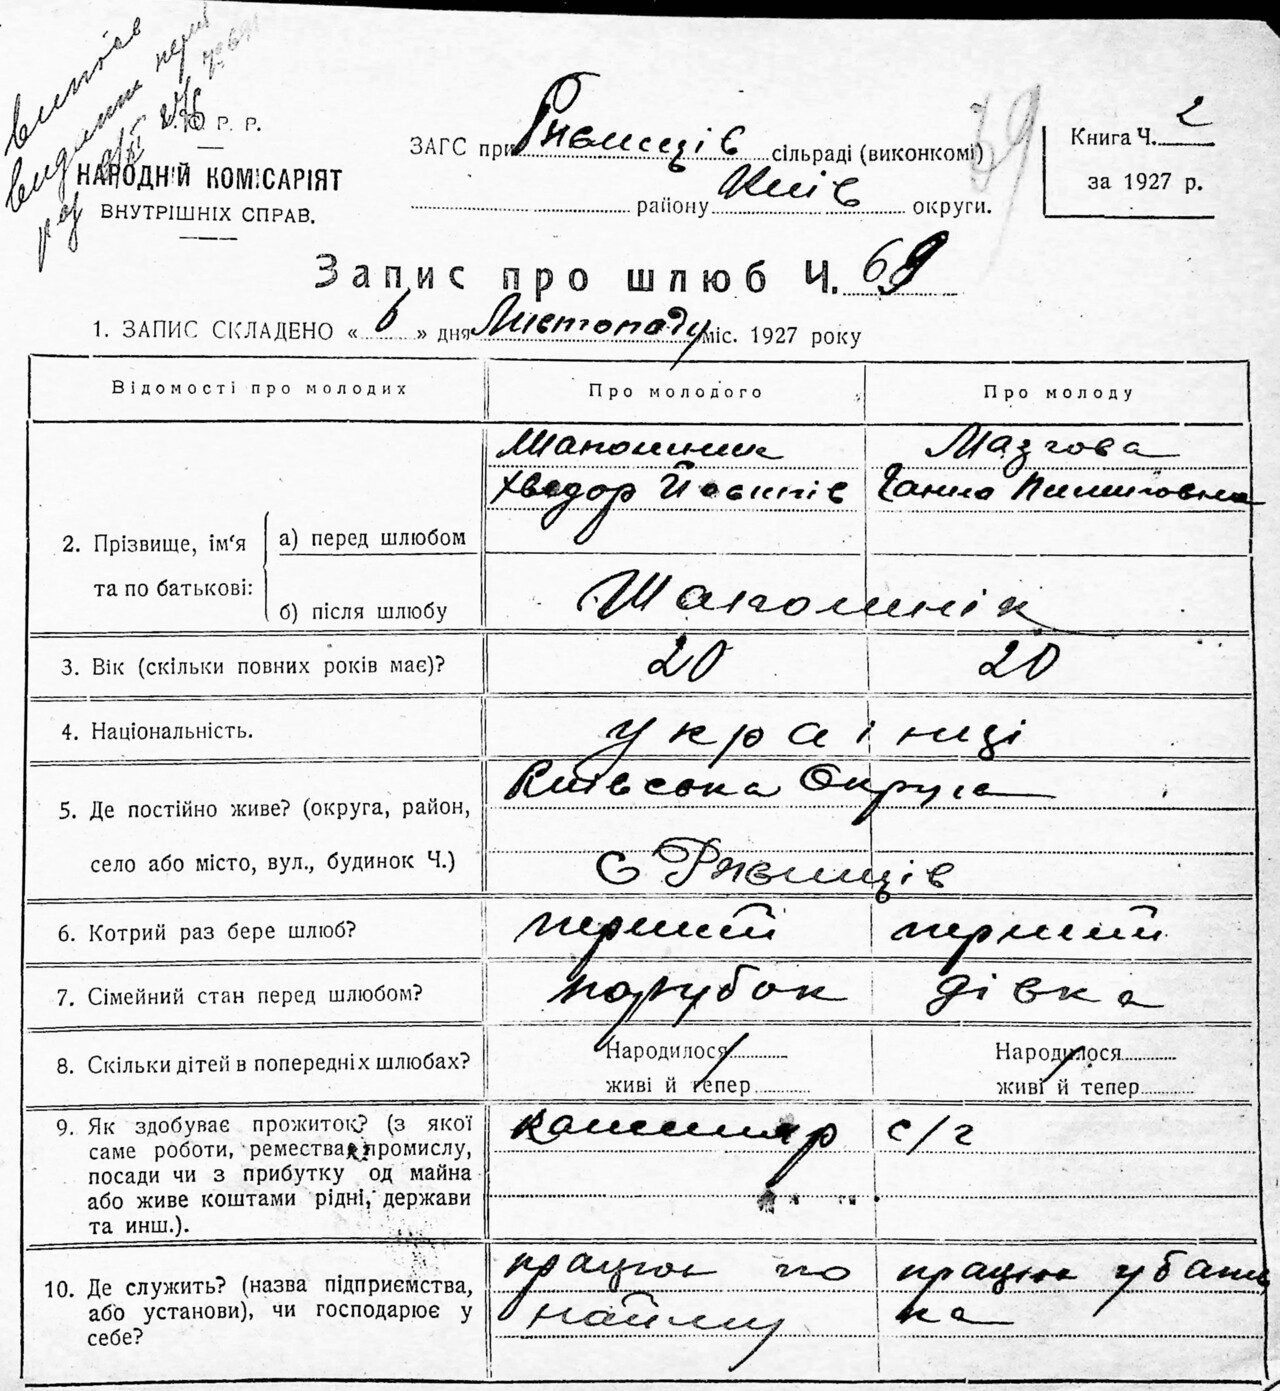 выпіс
У. С. Р. Р.
НАРОДНІЙ КОМІСАРІЯТ
ВНУТРІШНІХ СПРАВ.
ЗАГС при Гнєтеців сільраді (виконкомі)
району Київ округи.
39
Книга Ч. 2
за 1927 р.
Запис про шлюб Ч. 69
1. ЗАПИС СКЛАДЕНО « 6 » дня Листопаду міс. 1927 року
Відомості про молодих Про молодого Про молоду
2. Прізвище, ім'я та по батькові:
а) перед шлюбом
Шаполиник Мазгова
Хведор Йосипів Ганна Пилиповна
б) після шлюбу
Шаполинік
3. Вік (скільки повних років має)? 20 20
4. Національність. українці
5. Де постійно живе? (округа, район, Київська Округа
село або місто, вул., будинок Ч.) С
6. Котрий раз бере шлюб? перший перший
7. Сімейний стан перед шлюбом? парубок дівка
8. Скільки дітей в попередніх шлюбах? Народилося Народилося
живі й тепер живі й тепер
9. Як здобуває прожиток? (з якої с/г
саме роботи, ремества, промислу,
посади чи з прибутку од майна
або живе коштами рідні, держави
та инш.).
10. Де служить? (назва підприємства, працює по працює у батька
або установи), чи господарює у найму
себе?